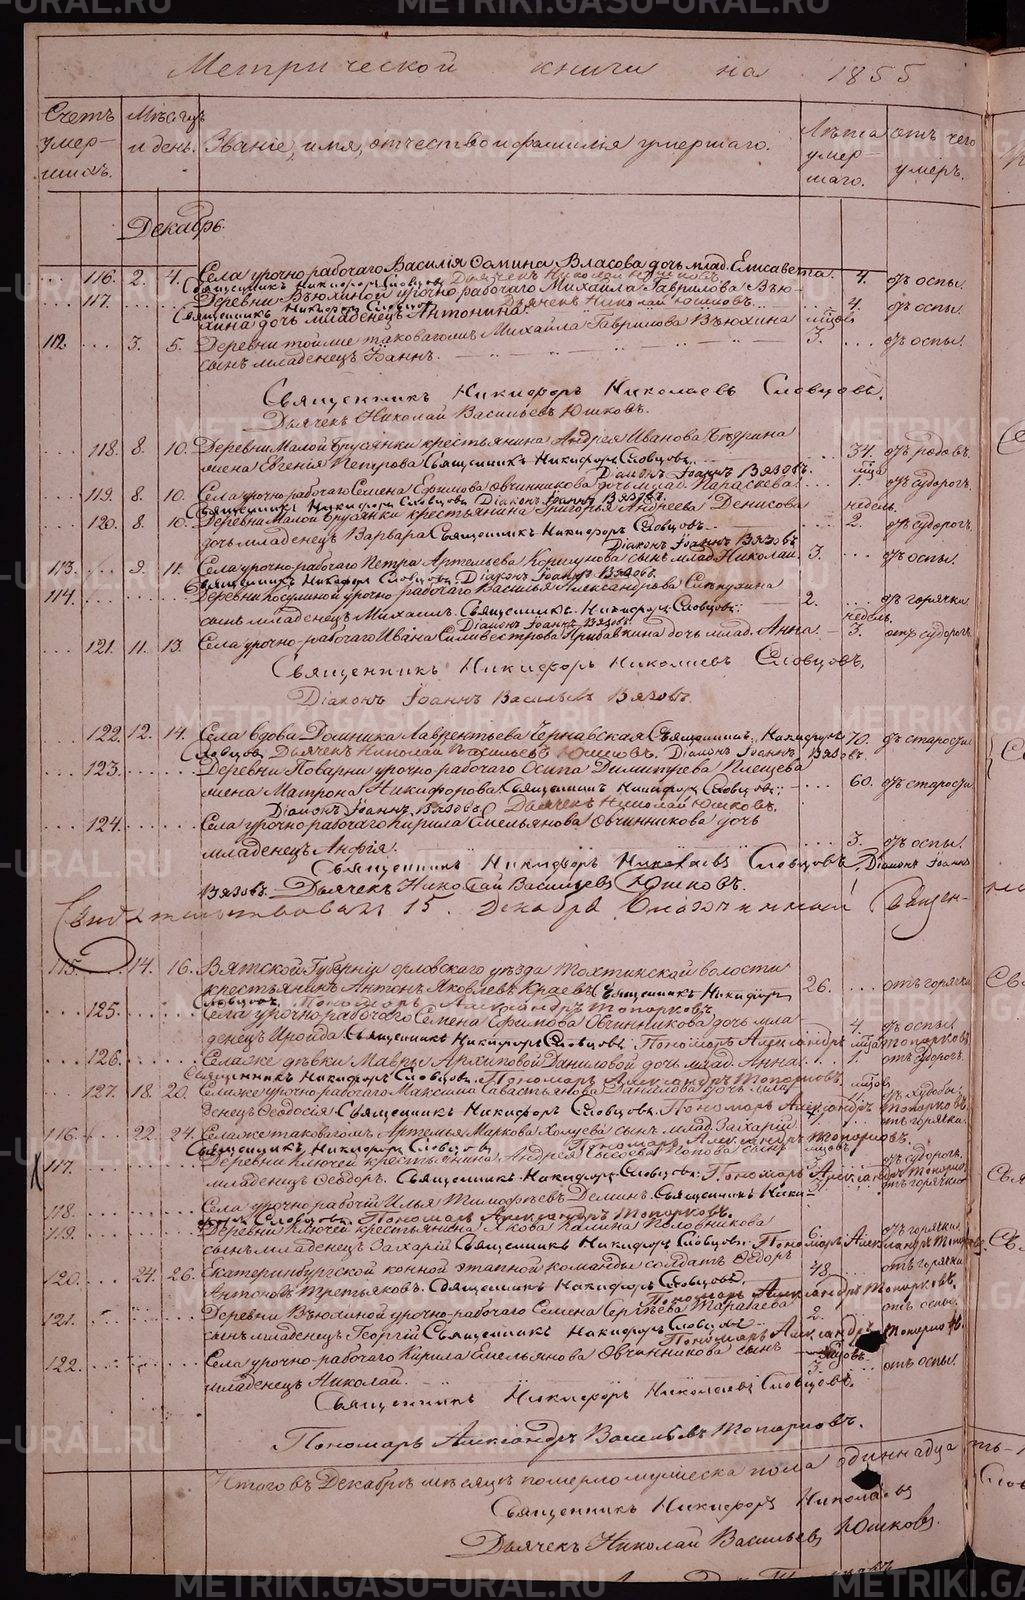 METRIKI.GASO-URAL.RU METRIKI.GASO-URAL.RU
Метрической книги на 1855
Счетъ умер-шихъ. Мѣсяцъ и день. Званіе, имя, отчество и фамилія умершаго. Лѣта умер-шаго. отъ чего умеръ.
Декабрь.
116. 2. 4. Села урочно-рабочаго Василія Сомина Власова дочь млад. Елисавета. 4. отъ оспы.
Священникъ Никифоръ Словцовъ Дьячекъ Николай Юшковъ
117. Деревни Вьюхиной урочно-рабочаго Михаила Гаврилова Вью- 4. отъ оспы.
Священникъ Никифоръ Словцовъ Дьячекъ Николай Юшковъ
хина дочь младенецъ Антонина. мѣсц.
112. 3. 5. Деревни тойже таковагожъ Михайла Гаврилова Вьюхина 3. отъ оспы.
сынъ младенецъ Іоаннъ.
Священникъ Никифоръ Николаевъ Словцовъ.
Дьячекъ Николай Васильевъ Юшковъ.
118. 8. 10. Деревни Малой Брусянки крестьянина Андрея Иванова 34. отъ родовъ.
жена Евгенія Петрова Священникъ Никифоръ Словцовъ.
Діаконъ Іоаннъ Вязовъ.
119. 8. 10. Села урочно-рабочаго Семена Ефимова Овчинникова дочь млад. Параскева. 1. отъ судорогъ
Священникъ Никифоръ Словцовъ Діаконъ Іоаннъ Вязовъ. недѣль.
120. 8. 10. Деревни Малой Брусянки крестьянина Григорья Андреева Денисова 2. отъ судорогъ.
дочь младенецъ Варвара Священникъ Никифоръ Словцовъ
Діаконъ Іоаннъ Вязовъ
113. 9. 11. Села урочно-рабочаго Петра Артемьева Коршунова сынъ млад. Николай 3. отъ оспы.
Священникъ Никифоръ Словцовъ, Діаконъ Іоаннъ Вязовъ.
114. Деревни Косулиной урочно-рабочаго Василья Александрова
сынъ младенецъ Михаилъ. Священникъ Никифоръ Словцовъ 2. отъ горячки
Діаконъ Іоаннъ Вязовъ. недѣль.
121. 11. 13. Села урочно-рабочаго Ивана Силивестрова Прибавкина дочь млад. Анна. 3. отъ судорогъ.
Священникъ Никифоръ Николаевъ Словцовъ.
Діаконъ Іоаннъ Васильевъ Вязовъ.
122. 12. 14. Села вдова Домника Лаврентьева Чернавская Священникъ Никифоръ 70. отъ старости
Словцовъ Дьячекъ Николай Васильевъ Юшковъ. Діаконъ Іоаннъ Вязовъ.
123. Деревни Поварни урочно-рабочаго Осипа Димитріева Плещева
жена Матрона Никифорова Священникъ Никифоръ Словцовъ 60. отъ старости
Діаконъ Іоаннъ Вязовъ Дьячекъ Николай Юшковъ.
124. Села урочно-рабочаго Кирила Емельянова Овчинникова дочь
младенецъ Анфія. 3. отъ оспы.
Священникъ Никифоръ Николаевъ Словцовъ. Діаконъ Іоаннъ
Вязовъ. Дьячекъ Николай Васильевъ Юшковъ.
Свидѣтельствовалъ 15. Декабря Благочинный Священ-
115. 14. 16. Вятской Губерніи орловскаго уѣзда Тохтинской волости
крестьянинъ Антонъ Яковлевъ Краевъ Священникъ Никифоръ 26. отъ горячки
Словцовъ. Пономарь Александръ Топорковъ.
125. Села урочно-рабочаго Семена Ефимова Овчинникова дочь мла- 4. отъ оспы
денецъ Ироида Священникъ Никифоръ Словцовъ Пономарь Александръ Топорковъ
126. Селаже дѣвки Мавры Архиповой Даниловой дочь млад. Анна. 1. отъ судорогъ.
Священникъ Никифоръ Словцовъ. Пономарь Александръ Топорковъ.
127. 18. 20. Селаже урочно-рабочаго Максима Савастьянова Данилова дочь мла-
денецъ Ѳеодосія Священникъ Никифоръ Словцовъ. Пономарь Александръ Топорковъ
116. 22. 24. Селаже таковагожъ Артемья Маркова Холуева сынъ млад. Захарій отъ горячки.
Священникъ Никифоръ Словцовъ Пономарь Александръ Топорковъ.
117. Деревни Ключей крестьянина Андрея Попова сынъ отъ судорогъ.
младенецъ Ѳеодоръ. Священникъ Никифоръ Словцовъ. Пономарь Александръ Топорковъ
118. Села урочно-рабочій Илья Тимофѣевъ Деминъ. Священникъ Ники- отъ горячки
форъ Словцовъ. Пономарь Александръ Топорковъ.
119. Деревни Ключей крестьянина Якова Калина Половникова 6. отъ горячки
сынъ младенецъ Захарій Священникъ Никифоръ Словцовъ. Пономарь Александръ Топорковъ
120. 24. 26. Екатеринбургской конной этапной команды солдатъ Ѳедоръ 48. отъ горячки
Антоновъ Третьяковъ. Священникъ Никифоръ Словцовъ.
Пономарь Александръ Топорковъ.
121. Деревни Вьюхиной урочно-рабочаго Семена Сергѣева Таранаева 2. отъ оспы.
сынъ младенецъ Георгій Священникъ Никифоръ Словцовъ
Пономарь Александръ Топорковъ.
122. Села урочно-рабочаго Кирила Емельянова Овчинникова сынъ 3. отъ оспы.
младенецъ Николай.
Священникъ Никифоръ Николаевъ Словцовъ.
Пономарь Александръ Васильевъ Топорковъ.
Итого въ Декабрѣ мѣсяцѣ померло мужеска пола одиннадцать
Священникъ Никифоръ Николаевъ
Дьячекъ Николай Васильевъ Юшковъ.
METRIKI.GASO-URAL.RU METRIKI.GASO-URAL.RU